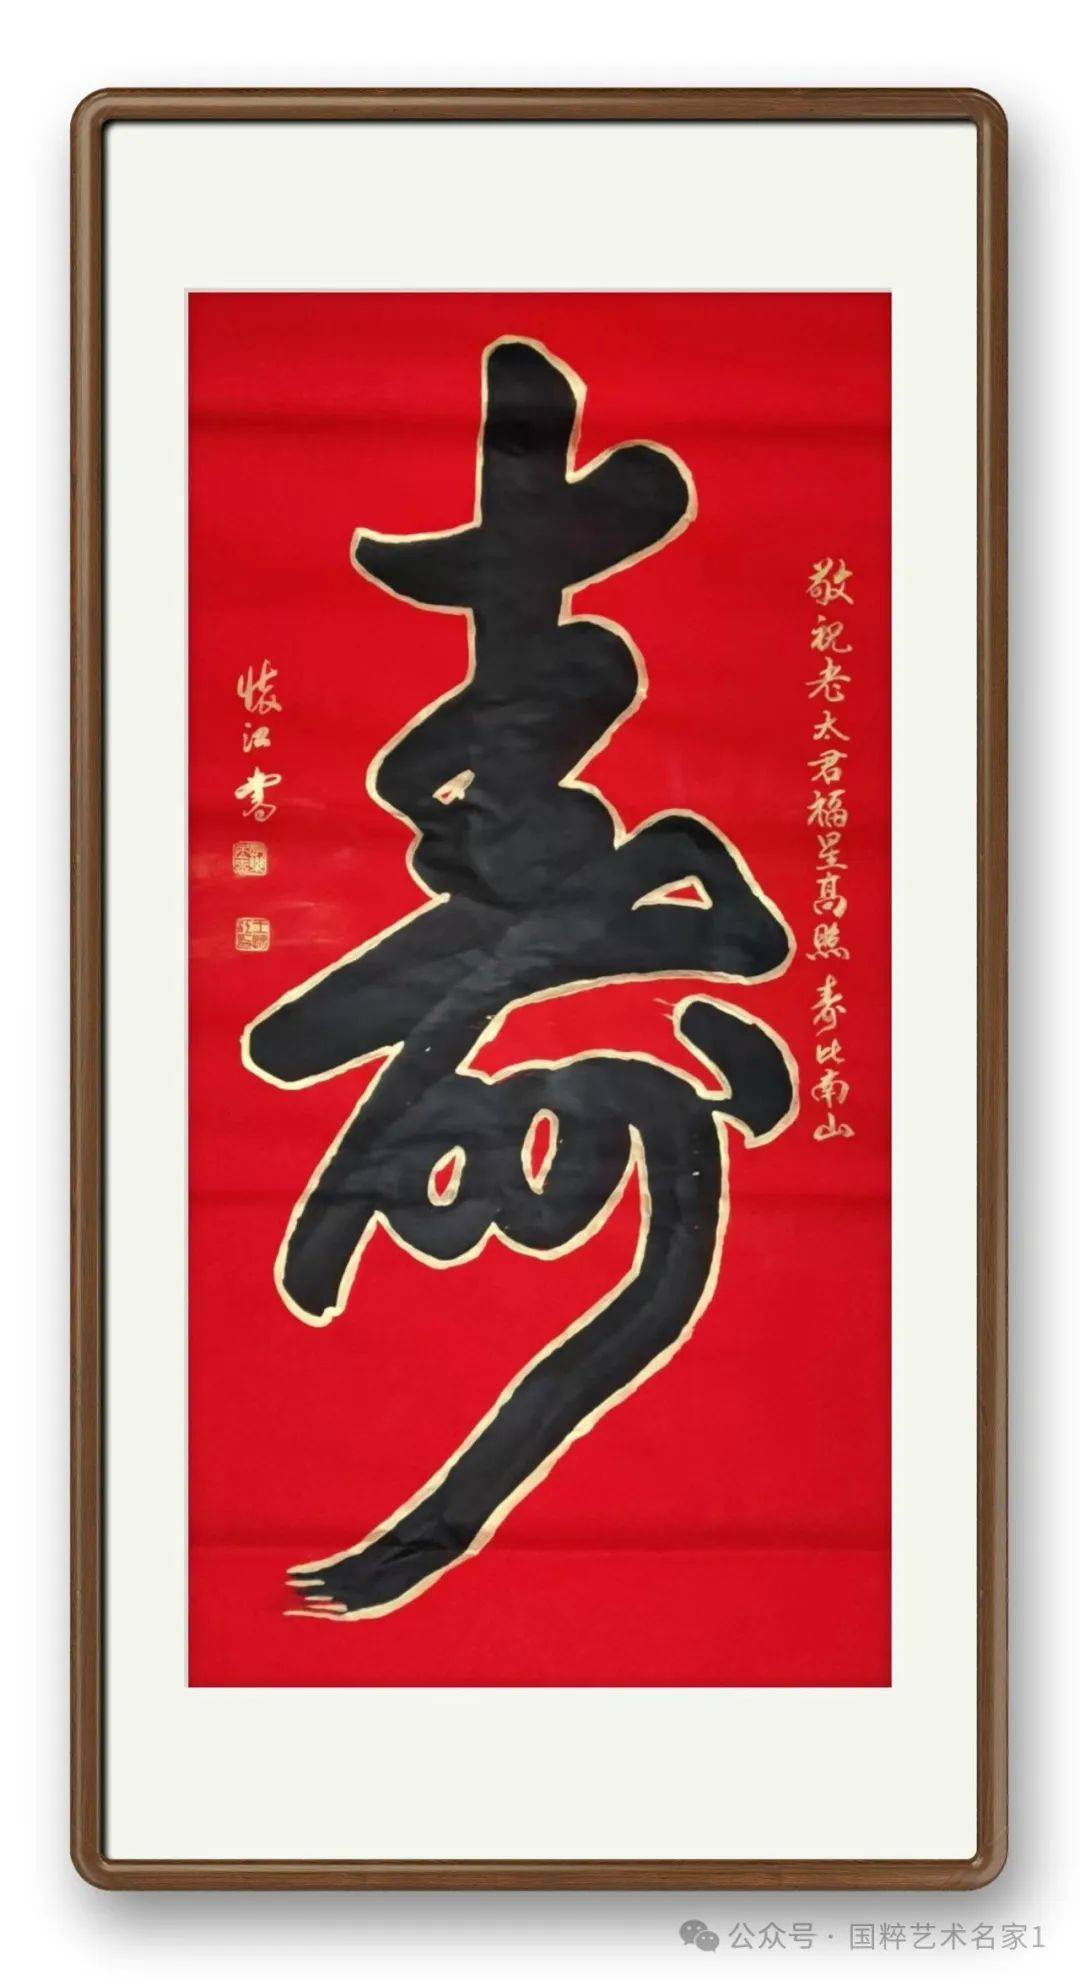 敬祝老太君福星高照 寿比南山
壽
懷江書
公众号 · 国粹艺术名家1